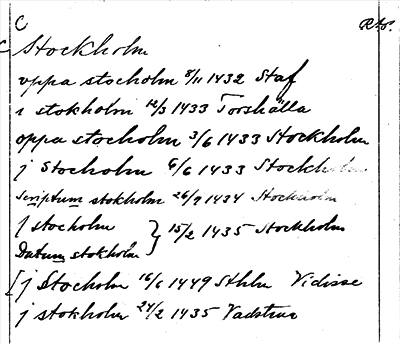 C RAp.
C Stockholm
vppa stocholm 8/11 1432 Staf
i stokholm 12/3 1433 Torshälla
oppa stocholm 3/6 1433 Stockholm
j Stocholm 6/6 1433 Stockholm
Scriptum stokholm 26/9 1434 Stockholm
j stocholm } 15/2 1435 Stockholm
Datum stokholm
[j Stocholm 16/6 1449 Sthlm Vidisse
j stokholm 24/2 1435 Vadstena